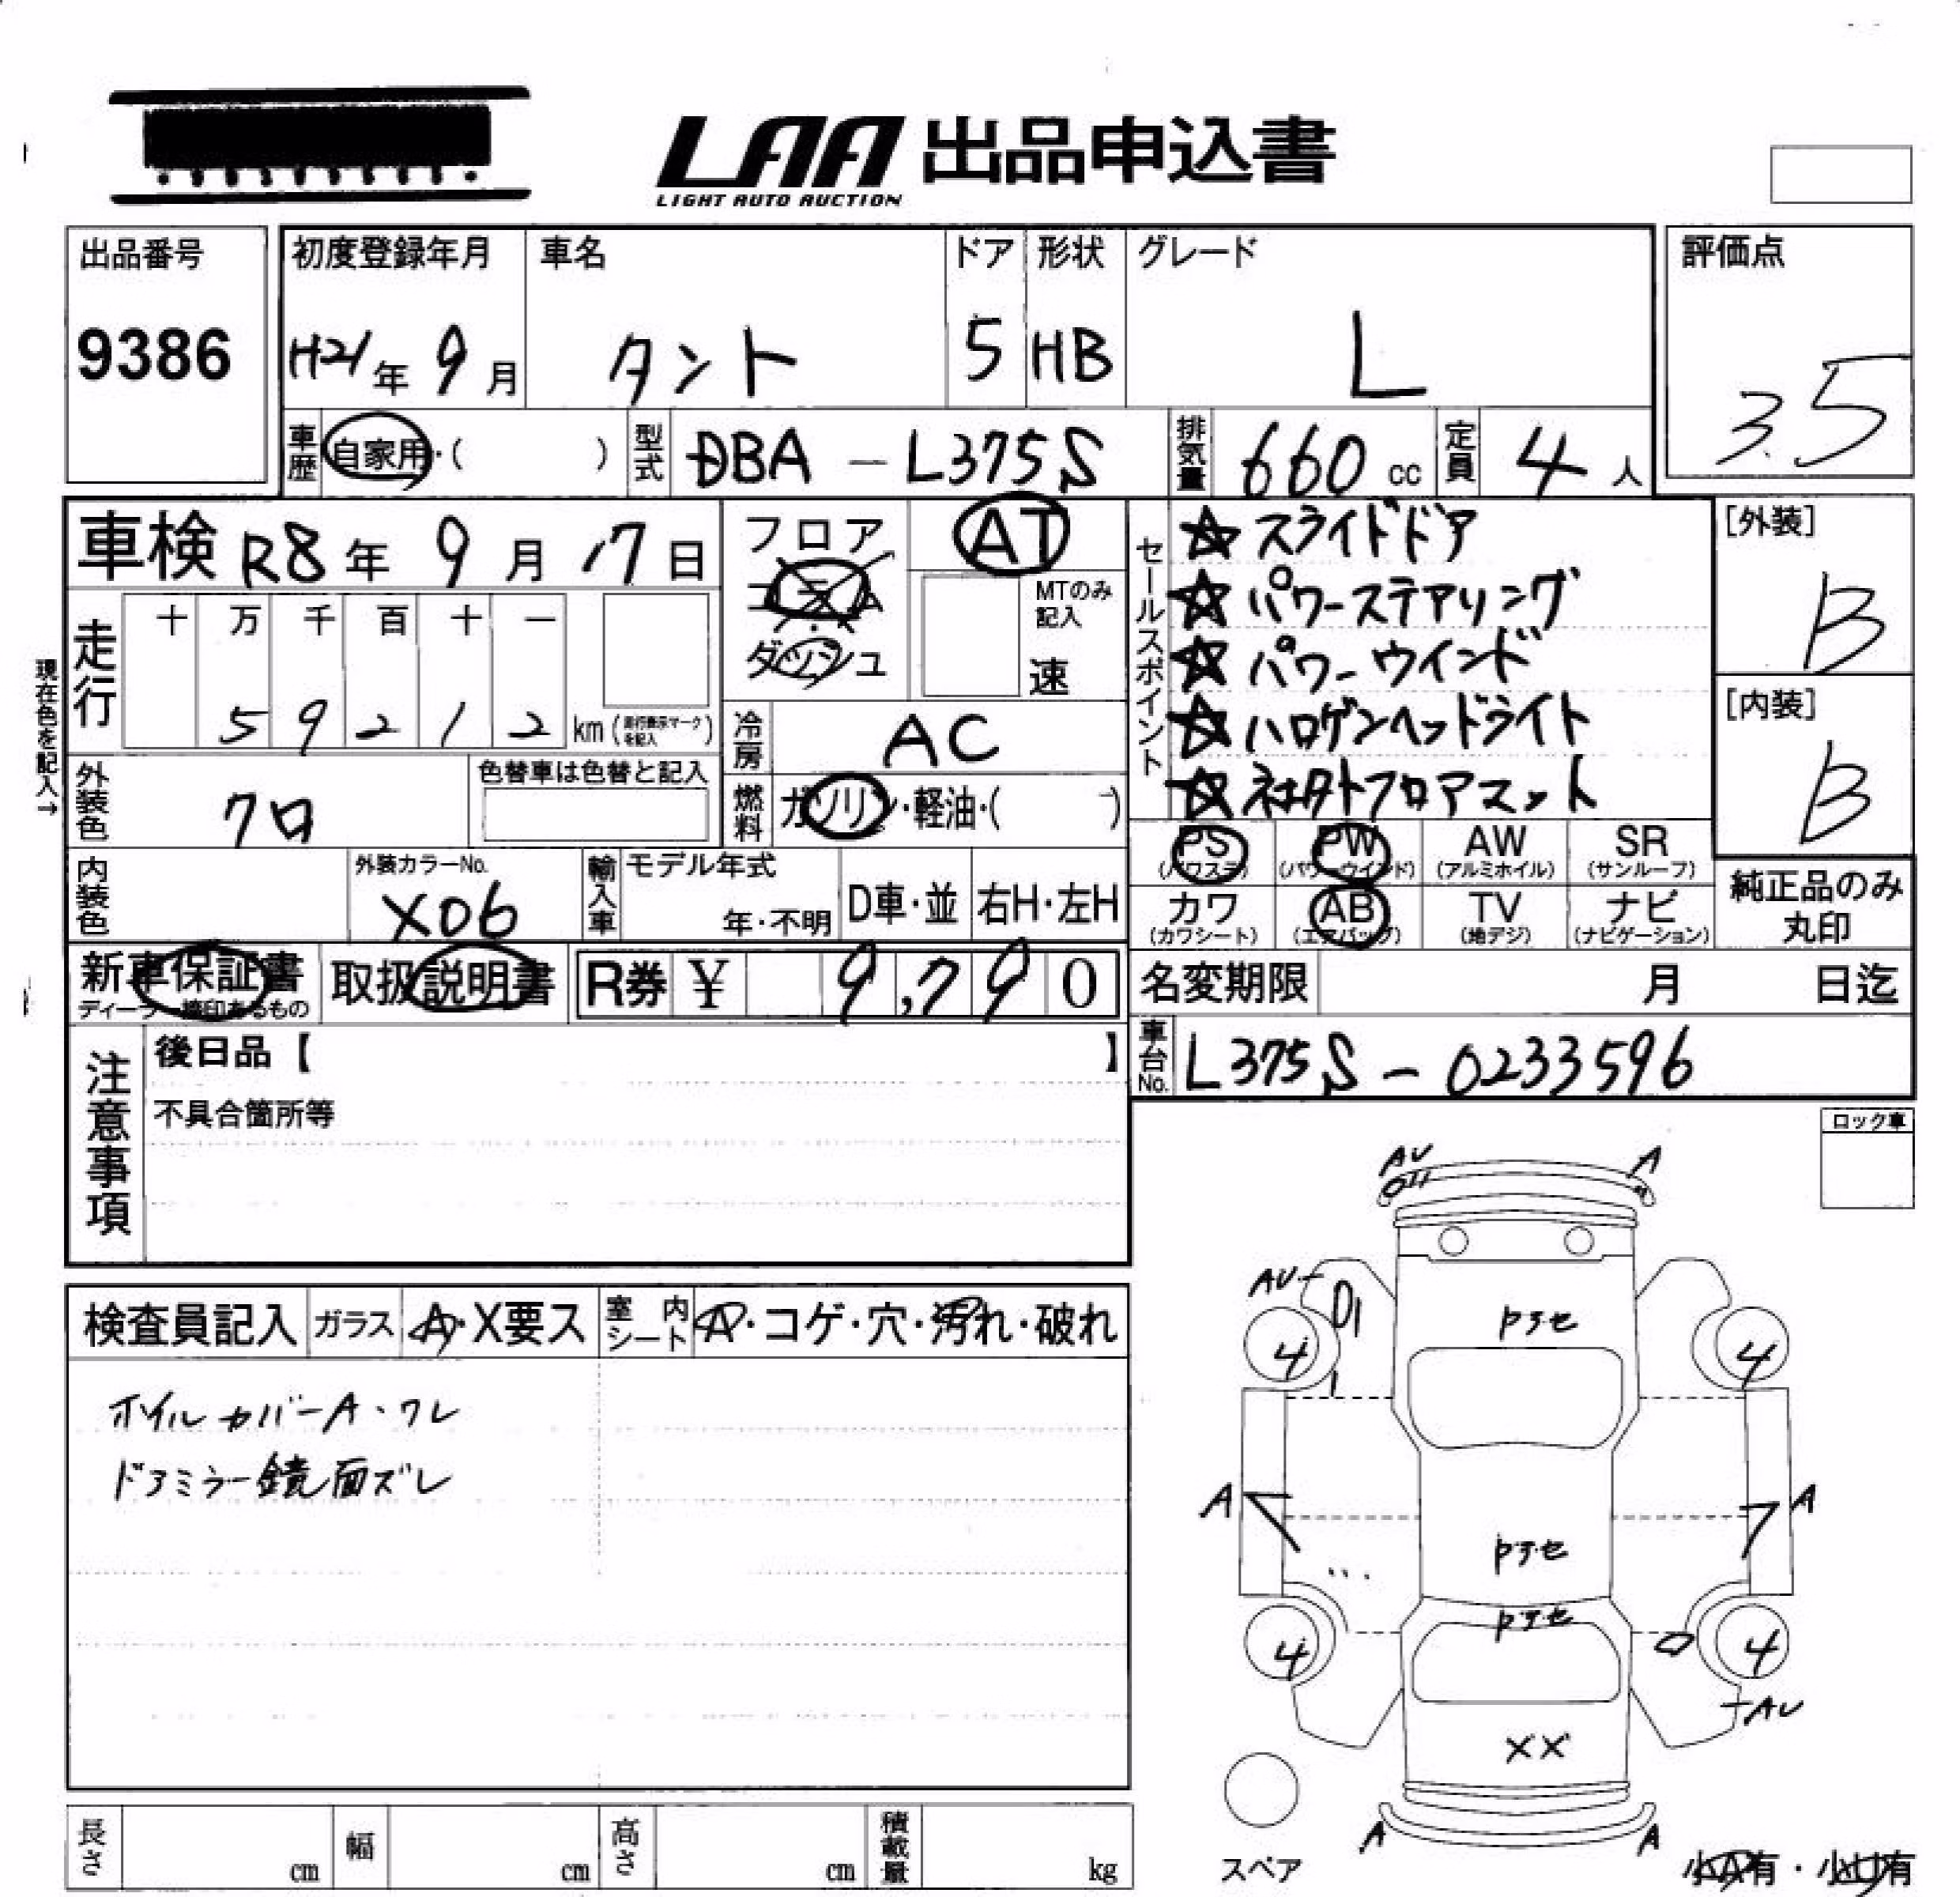 LAA 出品申込書
LIGHT AUTO AUCTION
出品番号
9386
初度登録年月
H21年 9月
車名
タント
ドア
5
形状
HB
グレード
L
評価点
3.5
車歴 自家用・( )
型式 DBA-L375S
排気量 660 cc
定員 4人
車検 R8年 9月 17日
フロア
コラム
ダッシュ
AT
MTのみ
記入
速
セールスポイント
☆スライドドア
☆パワーステアリング
☆パワーウインド
☆ハロゲンヘッドライト
☆社外フロアマット
[外装]
B
[内装]
B
現在色を記入→
走行
十 万 千 百 十 一
5 9 2 1 2 km (走行表示マークを記入)
冷房 AC
外装色 クロ
色替車は色替と記入
燃料 ガソリン・軽油・( )
PS
(パワステ)
PW
(パワーウインド)
AW
(アルミホイル)
SR
(サンルーフ)
内装色
外装カラーNo.
X06
輸入車
モデル年式
年・不明
D車・並
右H・左H
カワ
(カワシート)
AB
(エアバッグ)
TV
(地デジ)
ナビ
(ナビゲーション)
純正品のみ
丸印
新車保証書
ディーラー捺印あるもの
取扱説明書
R券 ¥ 9,790
名変期限 月 日迄
車台No. L375S-0233596
注意事項
後日品【 】
不具合箇所等
ロック車
検査員記入
ガラス A・X要ス
室内シート A・コゲ・穴・汚れ・破れ
ホイルカバーA・ワレ
ドアミラー鏡面ズレ
AU
A
AU
4
4
A
A
4
4
AU
XX
A
A
スペア
小A有・小U有
長さ cm
幅 cm
高さ cm
積載量 kg